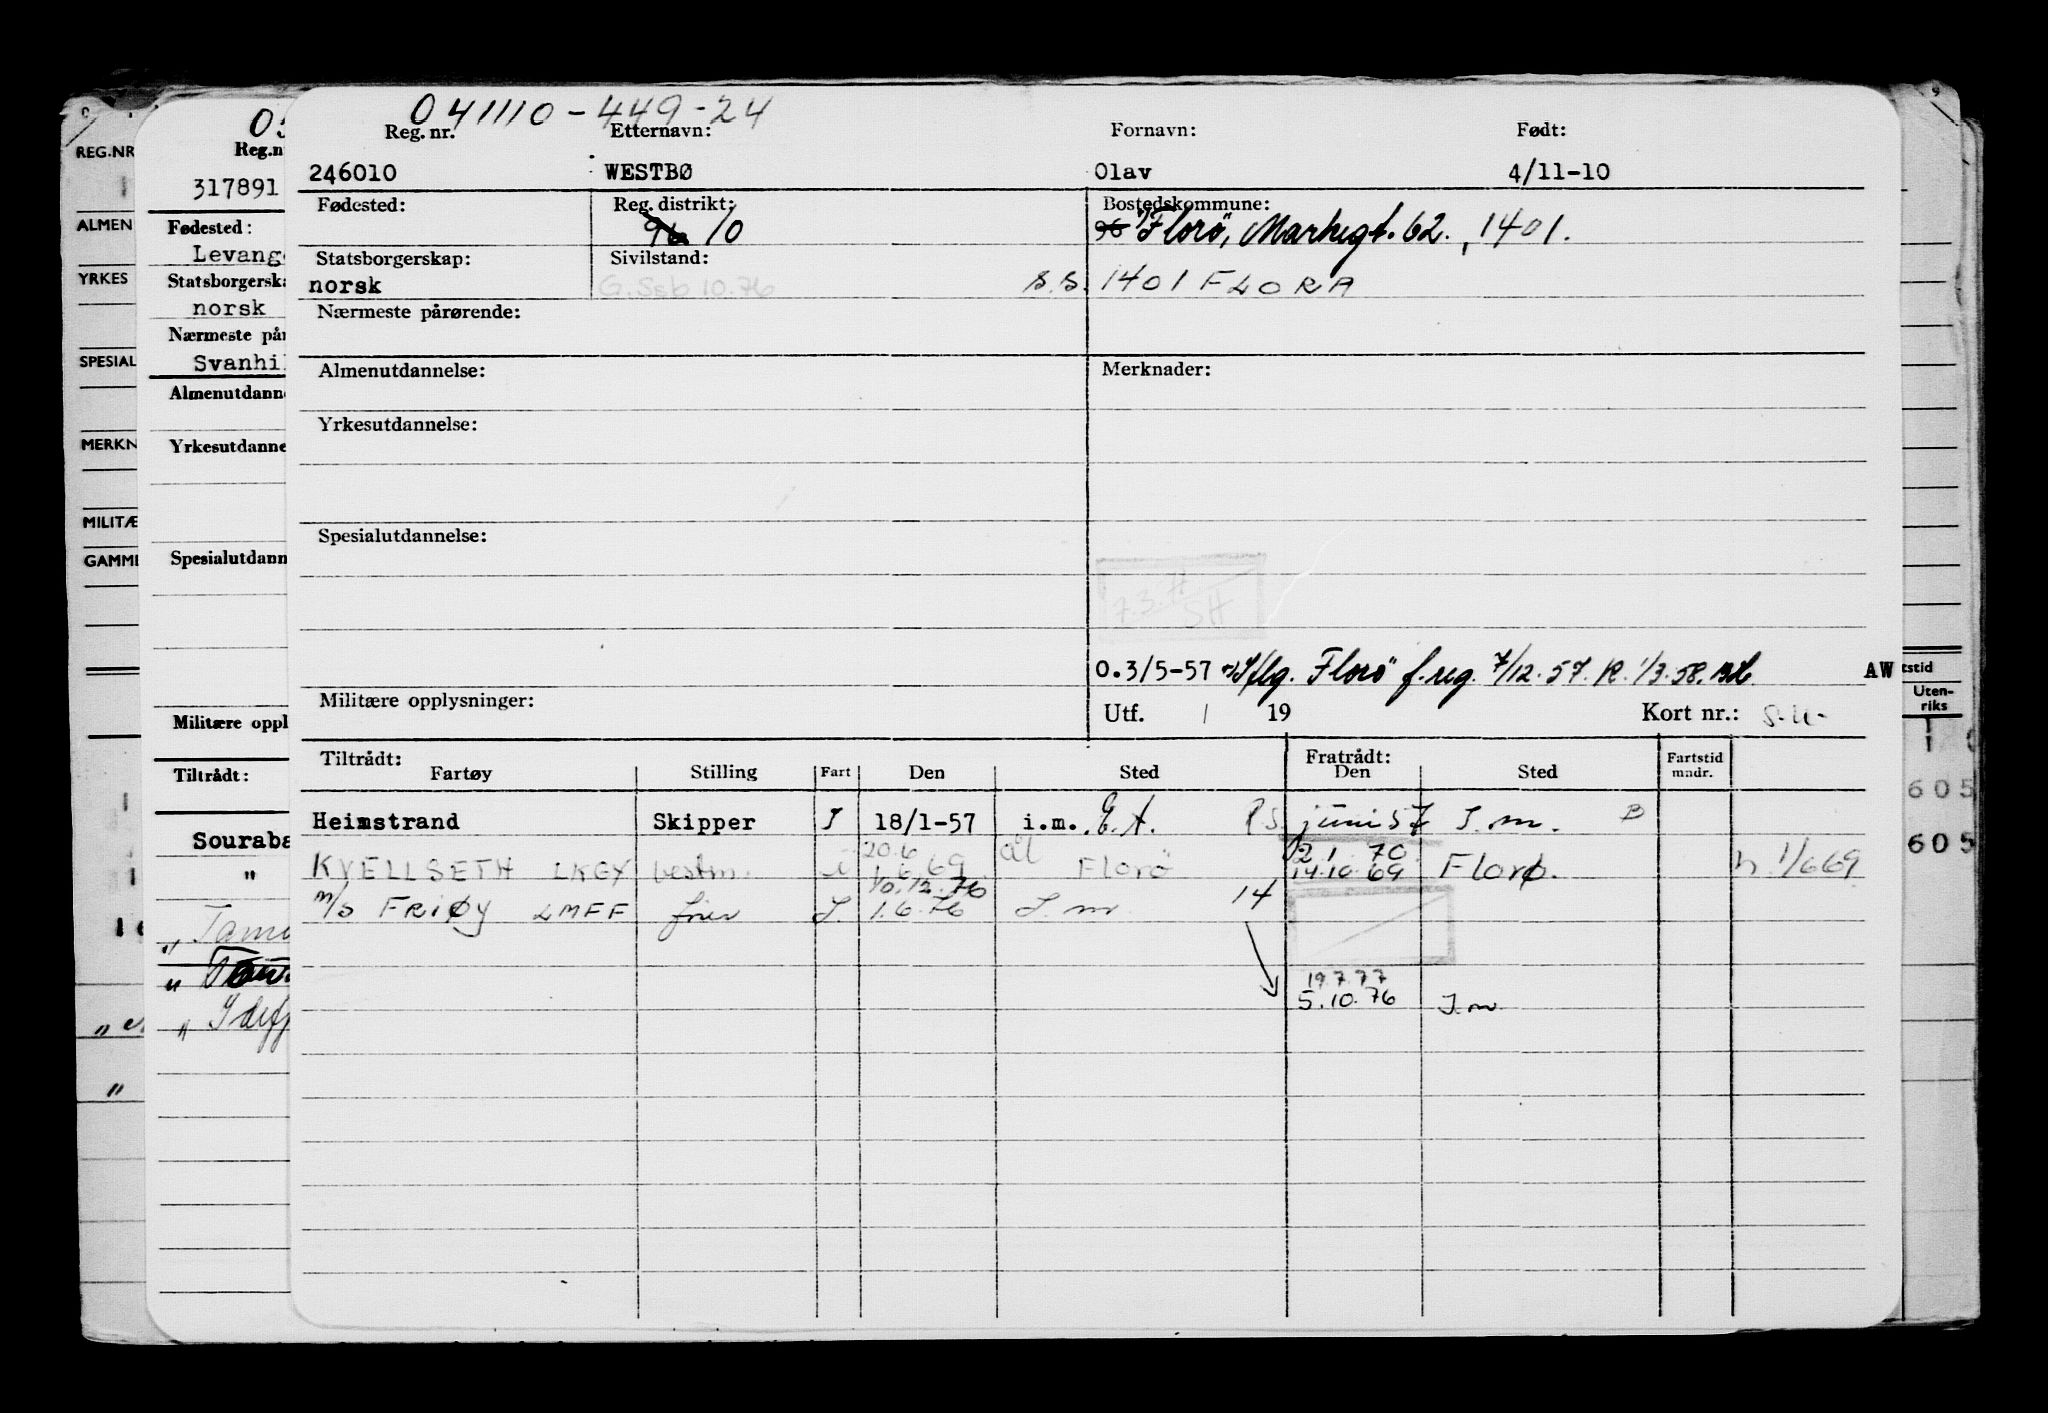 041110-449-24
Reg. nr. Etternavn: Fornavn: Født:
246010 WESTBØ Olav 4/11-10
Fødested: Reg. distrikt: Bostedskommune:
96 10 96 Florö, Markegt. 62., 1401.
Statsborgerskap: Sivilstand:
norsk G.Seb 10.76 s.s. 1401 FLORA
Nærmeste pårørende:
Almenutdannelse: Merknader:
Yrkesutdannelse:
Spesialutdannelse:
7.3.71 SH
O.3/5-57 Florö f. reg. 7/12.57. R. 1/3.58. AW
Militære opplysninger: Utf. / 19 Kort nr.: S.U-
Tiltrådt: Fratrådt: Fartstid
Fartøy Stilling Fart Den Sted Den Sted mndr.
Heimstrand Skipper I 18/1-57 i.m. E.A. juni 57 I.m. B
20.6 öl 2 1 70
KVELLSETH LKGY bestm. i 1.6.69 Florö 14.10.69 Florø. n. 1/669
10.12.76
m/s FRIØY LMFF fører I. 1.6.76 I.m 14
19.7.77
5.10.76 I.m
REG.NR
ALMEN
YRKES
SPESIAL
MERKN
MILITÆ
GAMME
Reg.n
317891
Fødested:
Levang
Statsborgerska
norsk
Nærmeste pår
Svanhil
Almenutdann
Yrkesutdanne
Spesialutdann
Militære oppl
Tiltrådt:
Souraba
"
"
"
"
"
"
tstid
Uten-
riks
605
605